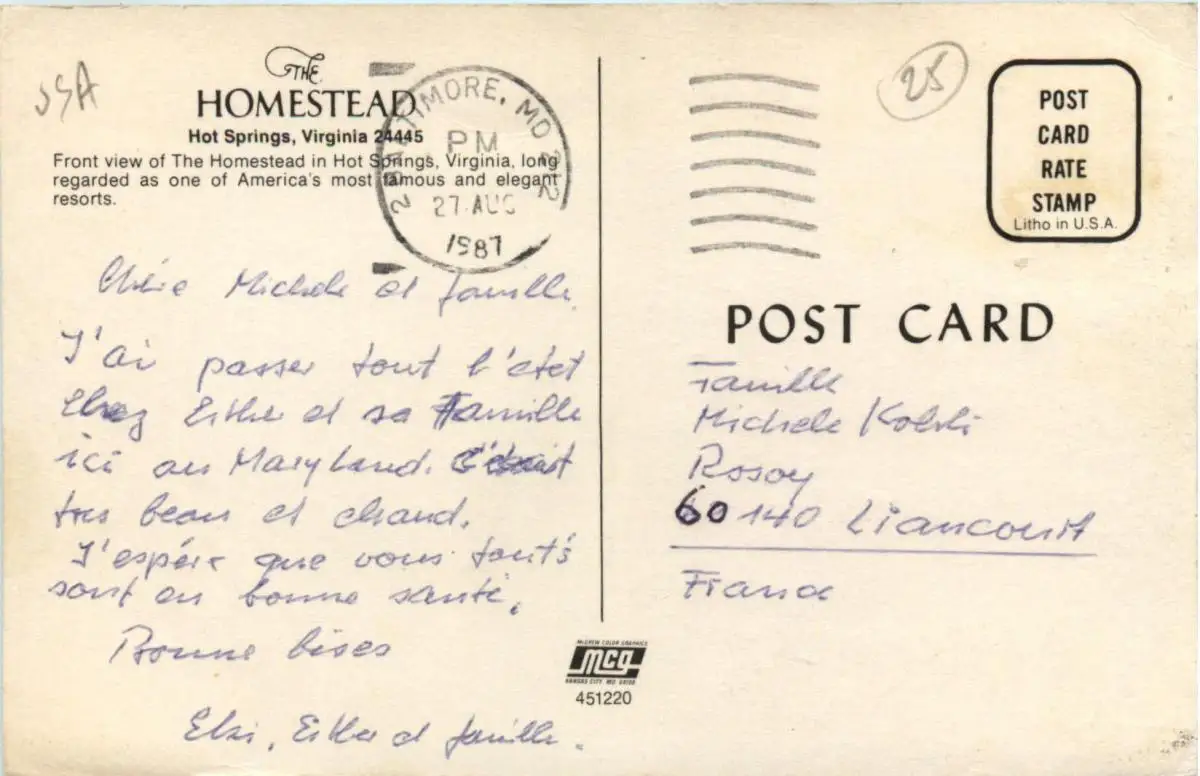 USA
THE
HOMESTEAD
Hot Springs, Virginia 24445
Front view of The Homestead in Hot Springs, Virginia, long
regarded as one of America's most famous and elegant
resorts.
BALTIMORE, MD 212
PM
27 AUG
1987
25
POST
CARD
RATE
STAMP
Litho in U.S.A.
Chére Michele et famille.
J'ai passer tout l'étét
Chez Esther et sa Familllle
ici au Maryland. C'était
trés beau et chaud.
J'espére que vous tout's
sont en bonne santé.
Bonne bises
Elsi, Esther et famille.
POST CARD
Famille
Michele Kolski
Rosoy
60140 Liancourt
France
McGREW COLOR GRAPHICS
mcg
KANSAS CITY, MO. 64108
451220